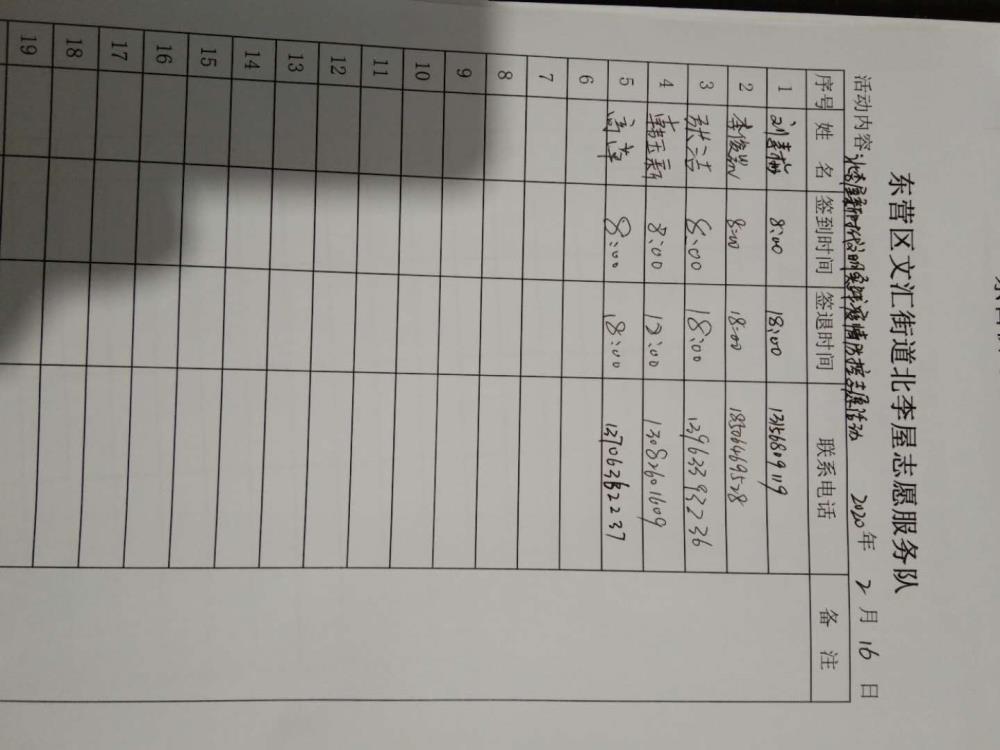 东营区文汇街道北李屋志愿服务队
活动内容 北李屋新时代文明实践疫情防控志愿活动 2020年 2月 16日
序号 姓 名 签到时间 签退时间 联系电话 备 注
1 8:00 18:00 13156809119
2 李俊岩 8:00 18:00 18506469528
3 张云吉 8:00 18:00 13963393236
4 韩玉新 8:00 18:00 13082601609
5 高峰 8:00 18:00 13706362237
6
7
8
9
10
11
12
13
14
15
16
17
18
19